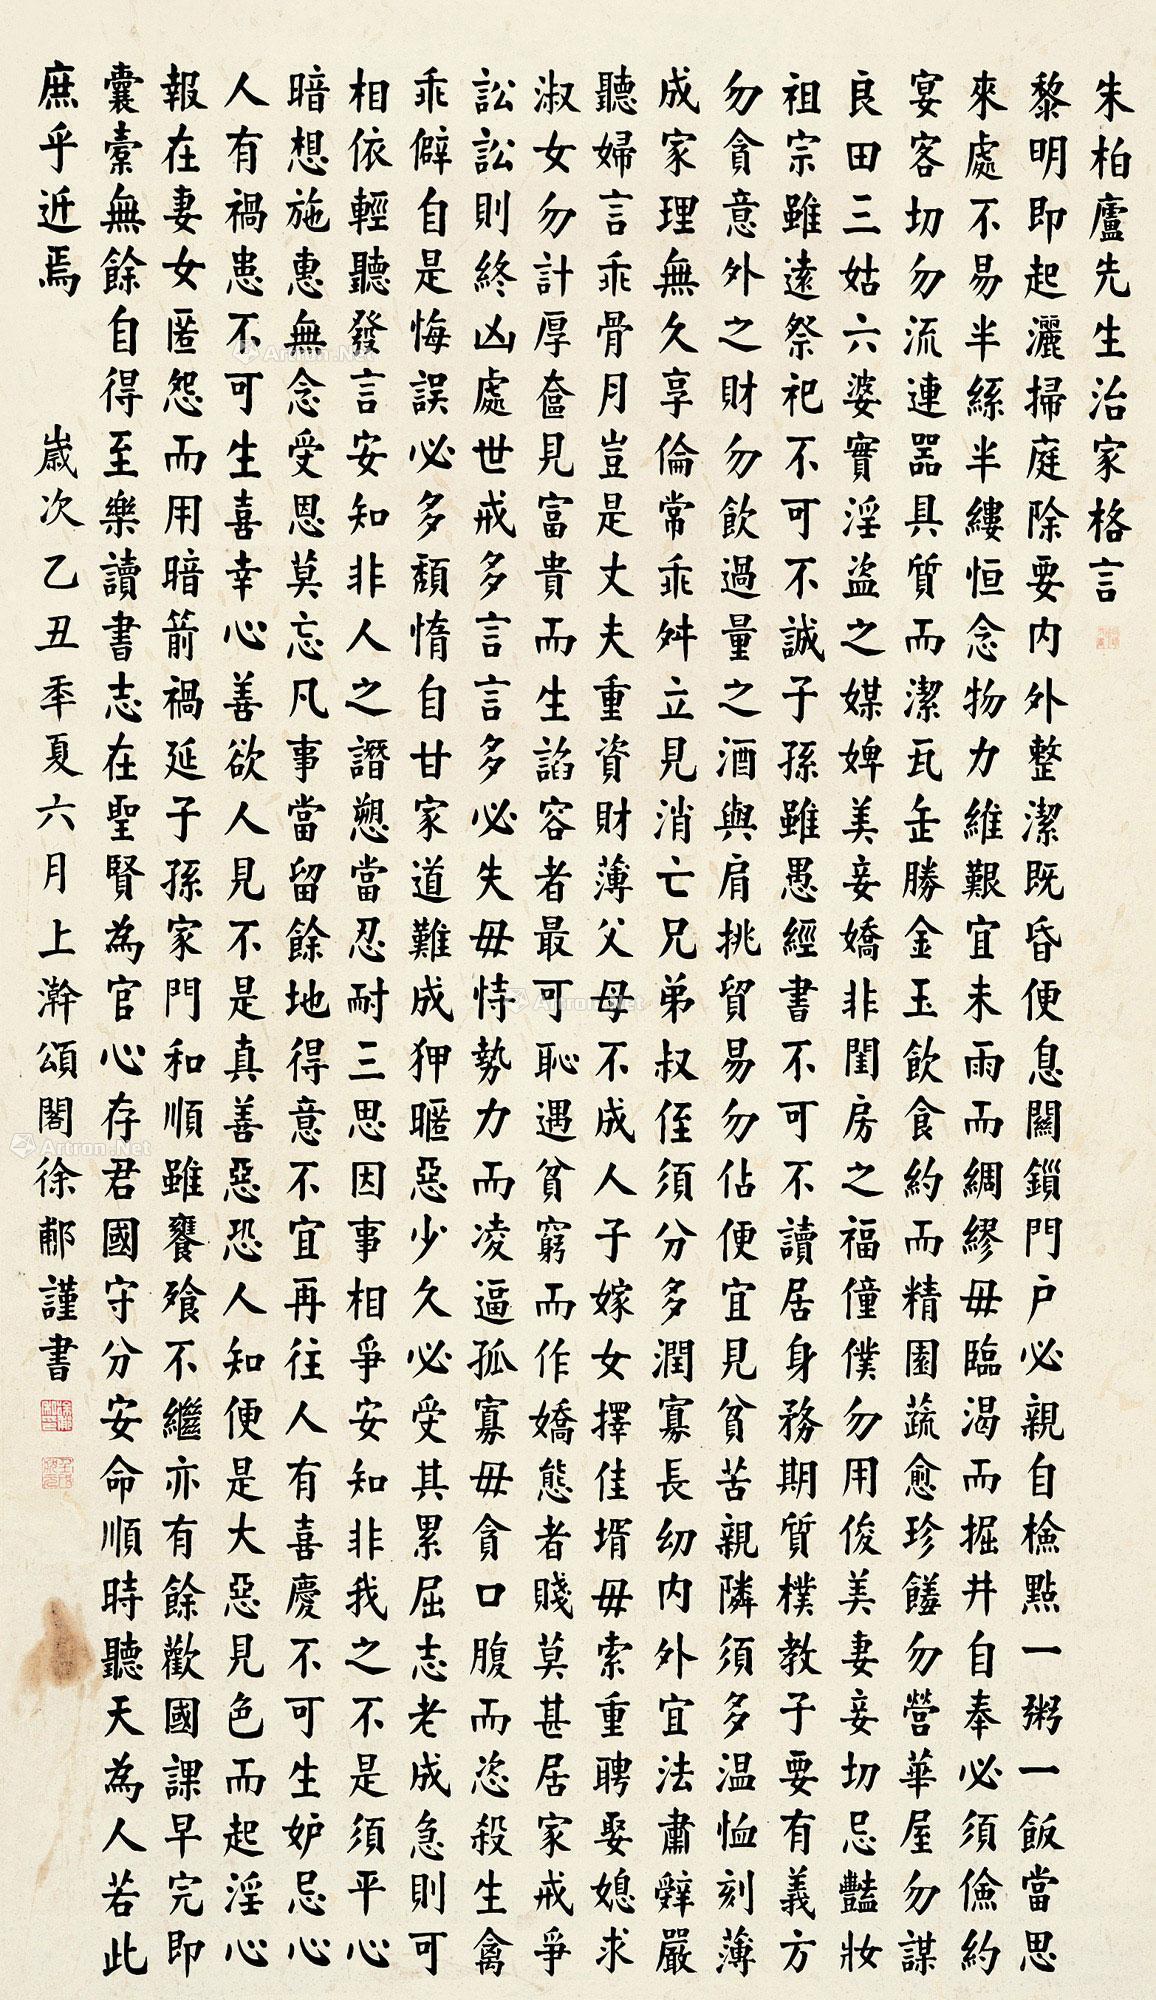 朱柏廬先生治家格言
黎明即起灑掃庭除要內外整潔既昏便息關鎖門戶必親自檢點一粥一飯當思
來處不易半絲半縷恒念物力維艱宜未雨而綢繆毋臨渴而掘井自奉必須儉約
宴客切勿流連器具質而潔瓦缶勝金玉飲食約而精園蔬愈珍饈勿營華屋勿謀
良田三姑六婆實淫盜之媒婢美妾嬌非閨房之福僮僕勿用俊美妻妾切忌豔妝
祖宗雖遠祭祀不可不誠子孫雖愚經書不可不讀居身務期質樸教子要有義方
勿貪意外之財勿飲過量之酒與肩挑貿易勿佔便宜見貧苦親隣須多温恤刻薄
成家理無久享倫常乖舛立見消亡兄弟叔侄須分多潤寡長幼内外宜法肅辭嚴
聽婦言乖骨月豈是丈夫重資財薄父母不成人子嫁女擇佳壻毋索重聘娶媳求
淑女勿計厚奩見富貴而生諂容者最可恥遇貧窮而作嬌態者賤莫甚居家戒爭
訟訟則終凶處世戒多言言多必失毋恃勢力而凌逼孤寡毋貪口腹而恣殺生禽
乖僻自是悔誤必多頹惰自甘家道難成狎暱惡少久必受其累屈志老成急則可
相依輕聽發言安知非人之譖愬當忍耐三思因事相爭安知非我之不是須平心
暗想施惠無念受恩莫忘凡事當留餘地得意不宜再往人有喜慶不可生妒忌心
人有禍患不可生喜幸心善欲人見不是真善惡恐人知便是大惡見色而起淫心
報在妻女匿怨而用暗箭禍延子孫家門和順雖饔飧不繼亦有餘歡國課早完即
囊橐無餘自得至樂讀書志在聖賢為官心存君國守分安命順時聽天為人若此
庶乎近焉　歲次乙丑年夏六月上澣頌閣徐郙謹書
Artron.Net
Artron.Net
Artron.Net